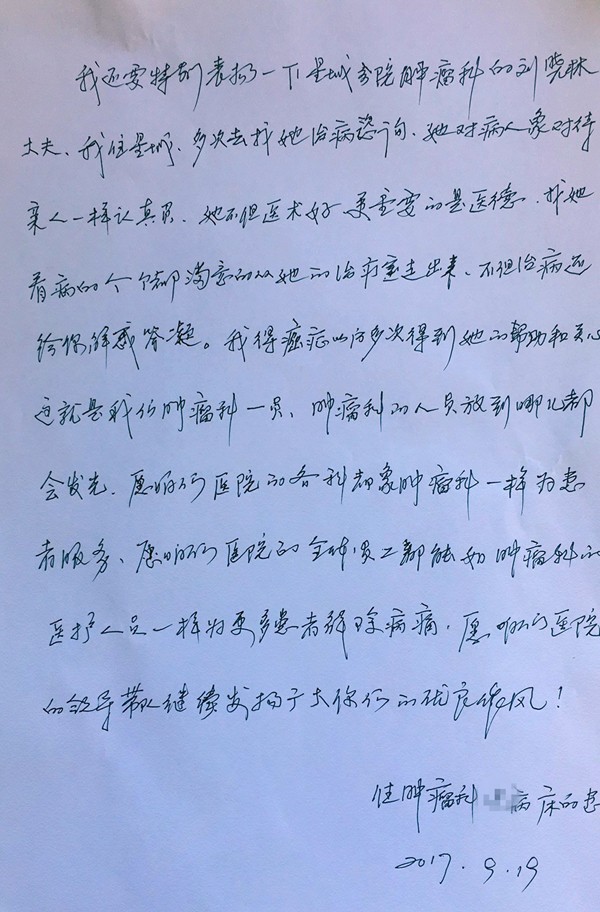 我还要特别表扬一下星城分院肿瘤科的刘晓林
大夫、我住星城、多次去找她治病咨询、她对病人象对待
亲人一样认真负、她不但医术好更重要的是医德、找她
看病的个个都满意的从她的治疗室走出来、不但治病还
给你解惑答凝。我得癌症以后多次得到她的帮助和关心
这就是我们肿瘤科一员、肿瘤科的人员放到哪儿都
会发光、愿咱们医院的各科都象肿瘤科一样为患
者服务、愿咱们医院的全体员工都能如肿瘤科的
医护人员一样为更多患者解除病痛、愿咱们医院
的领导带队继续发扬广大你们的优良作风！
住肿瘤科 病床的患
2017.9.19